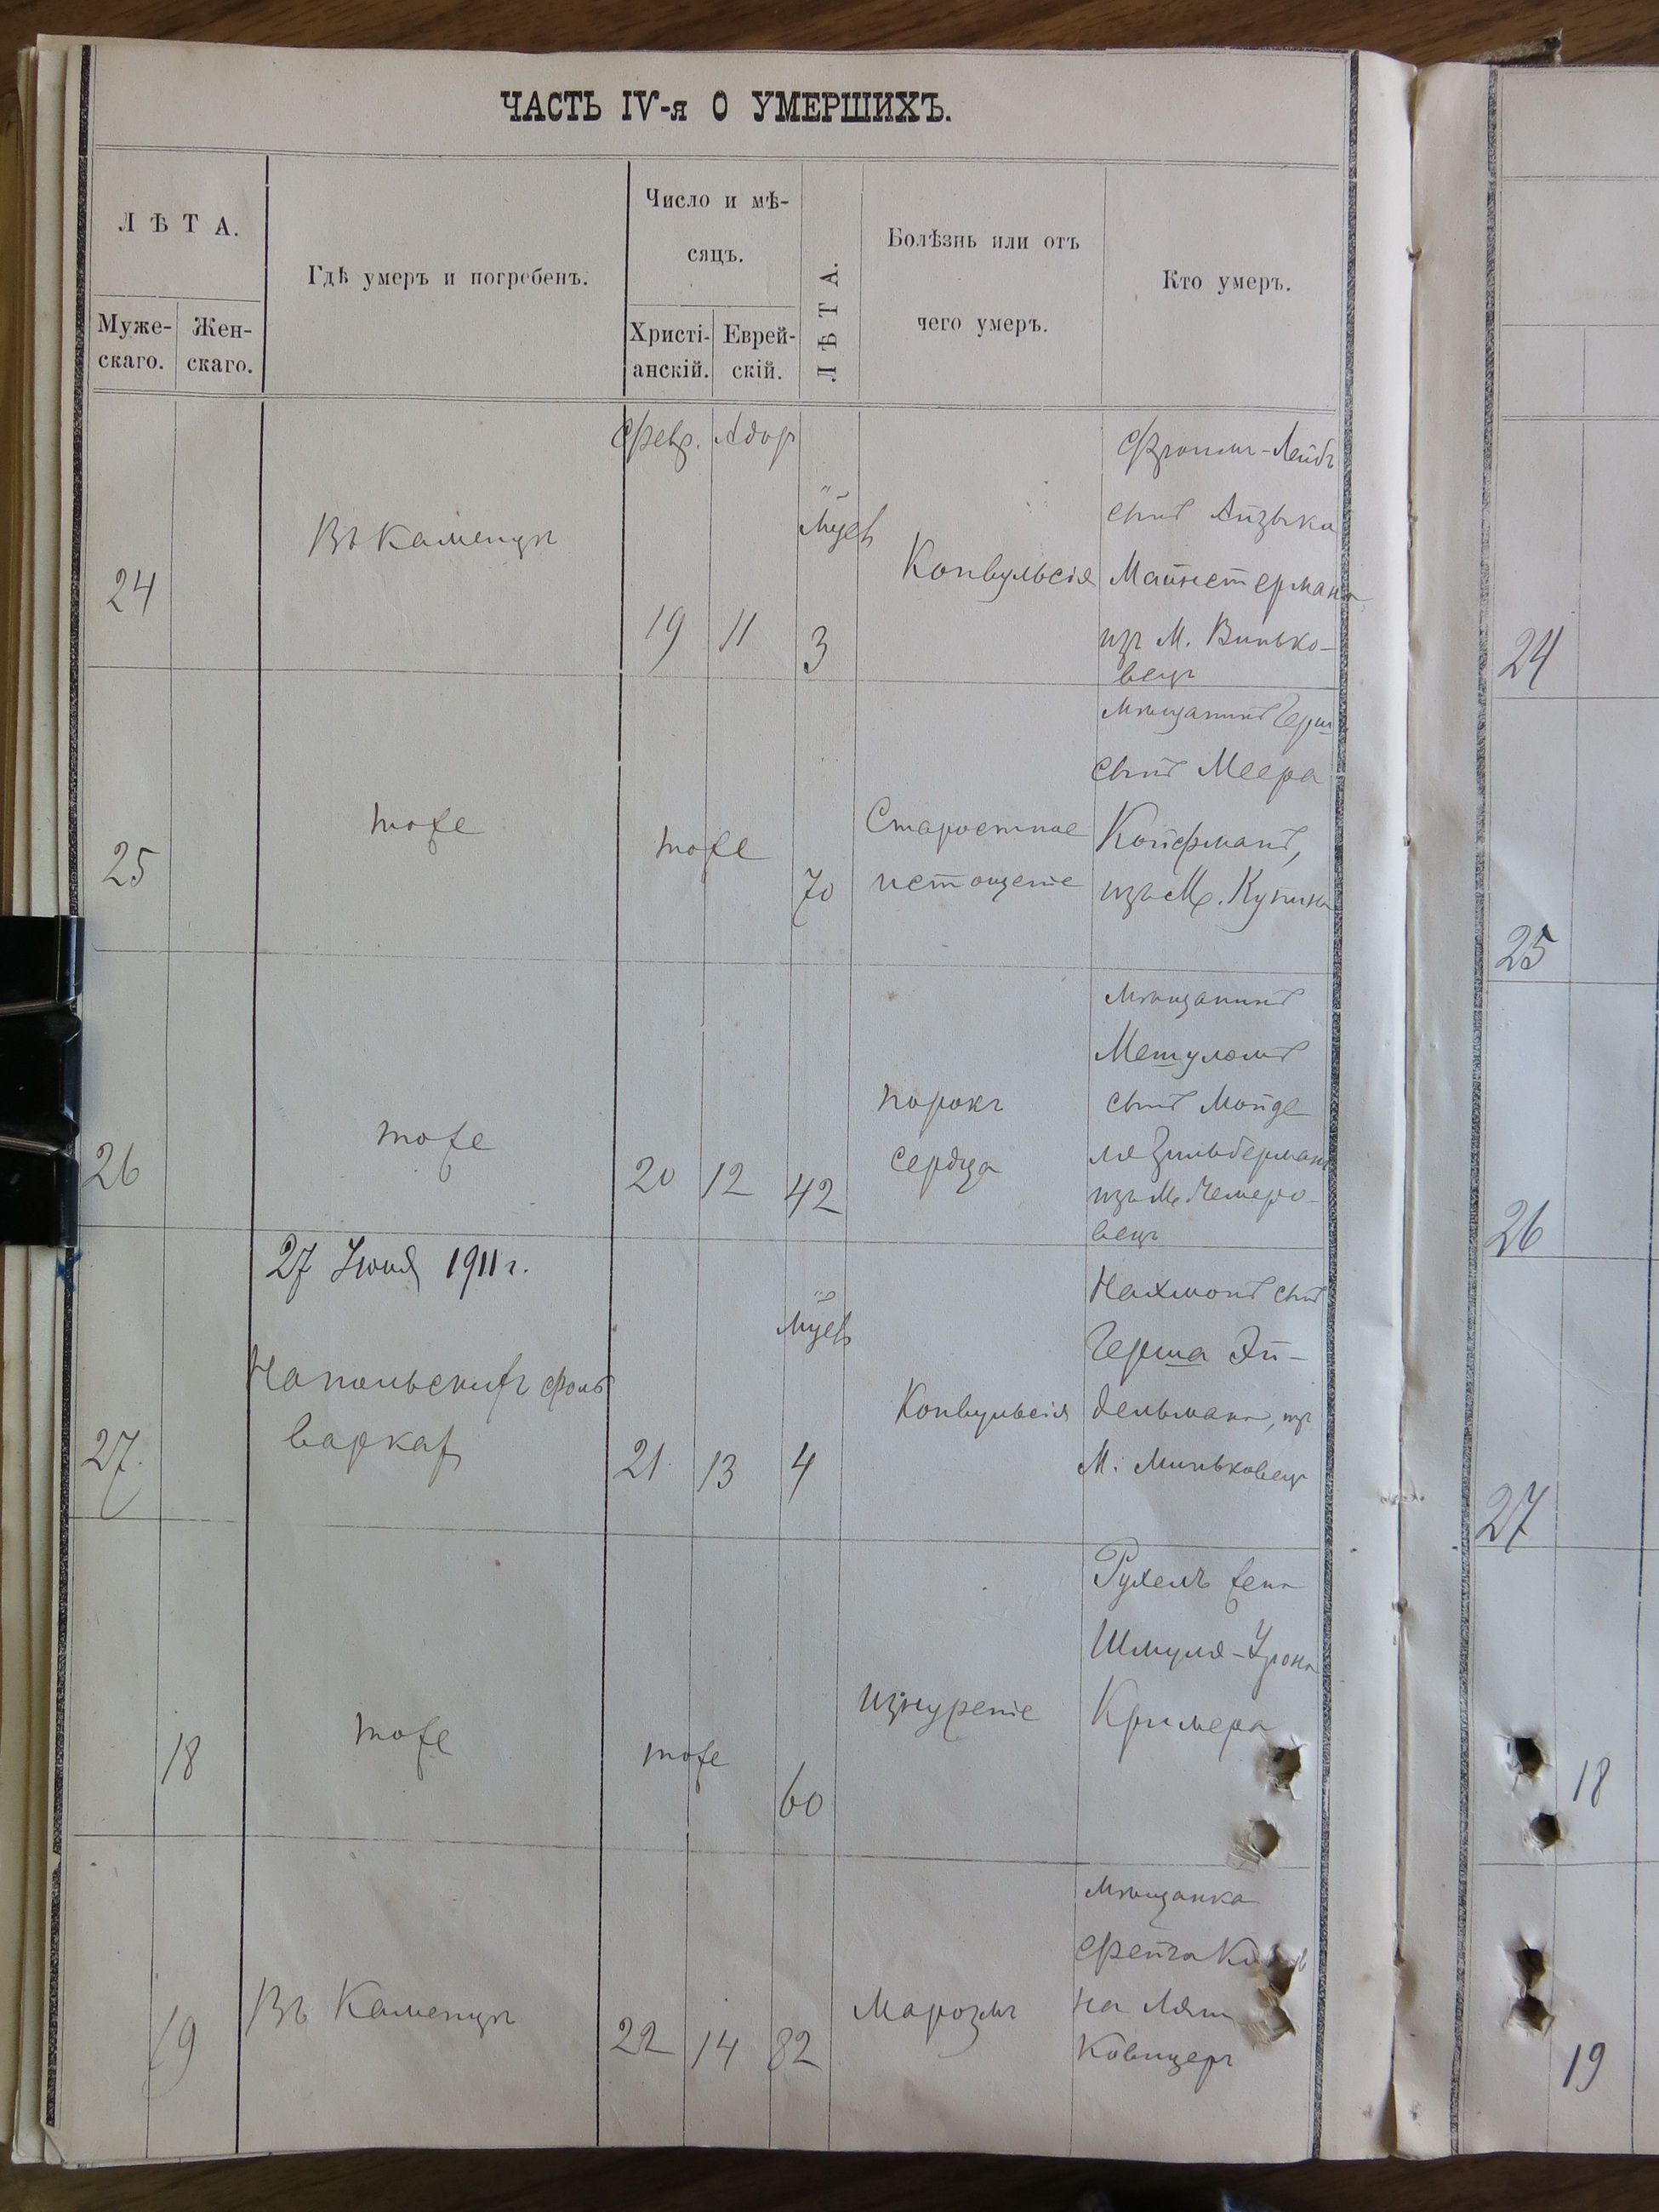 ЧАСТЬ IV-я О УМЕРШИХЪ.
ЛѢТА.
Муже-
скаго.
Жен-
скаго.
Гдѣ умеръ и погребенъ.
Число и мѣ-
сяцъ.
Христі-
анскій.
Еврей-
скій.
ЛѢТА.
Болѣзнь или отъ
чего умеръ.
Кто умеръ.
Февр. Адар
24
Въ Каменцѣ
19
11
Мѣс
3
Конвульсія
Фроимъ-Лейбъ
сынъ Айзыка
Майнстермана
изъ М. Винько-
вецъ
25
тоже
тоже
70
Старостное
истощеніе
Мѣщанинъ Герш
сынъ Меера
Койфманъ,
изъ М. Купина
26
тоже
20
12
42
порокъ
сердца
мѣщанинъ
Мешуломъ
сынъ
ля Зильбермана
изъ М. Чемеро-
вецъ
27 Іюня 1911 г.
27
На польскихъ фоль
варкахъ
21
13
Мѣс
4
Конвульсія
Нахмонъ сынъ
Герша Эй-
дельмана, изъ
М. Миньковецъ
18
тоже
тоже
60
Изнуреніе
Рухель жена
Шмуля-
Кримера
19
Въ Каменцѣ
22
14
82
Марозмъ
Мѣщанка
Фейга
на
Ковицеръ
24
25
26
27
18
19